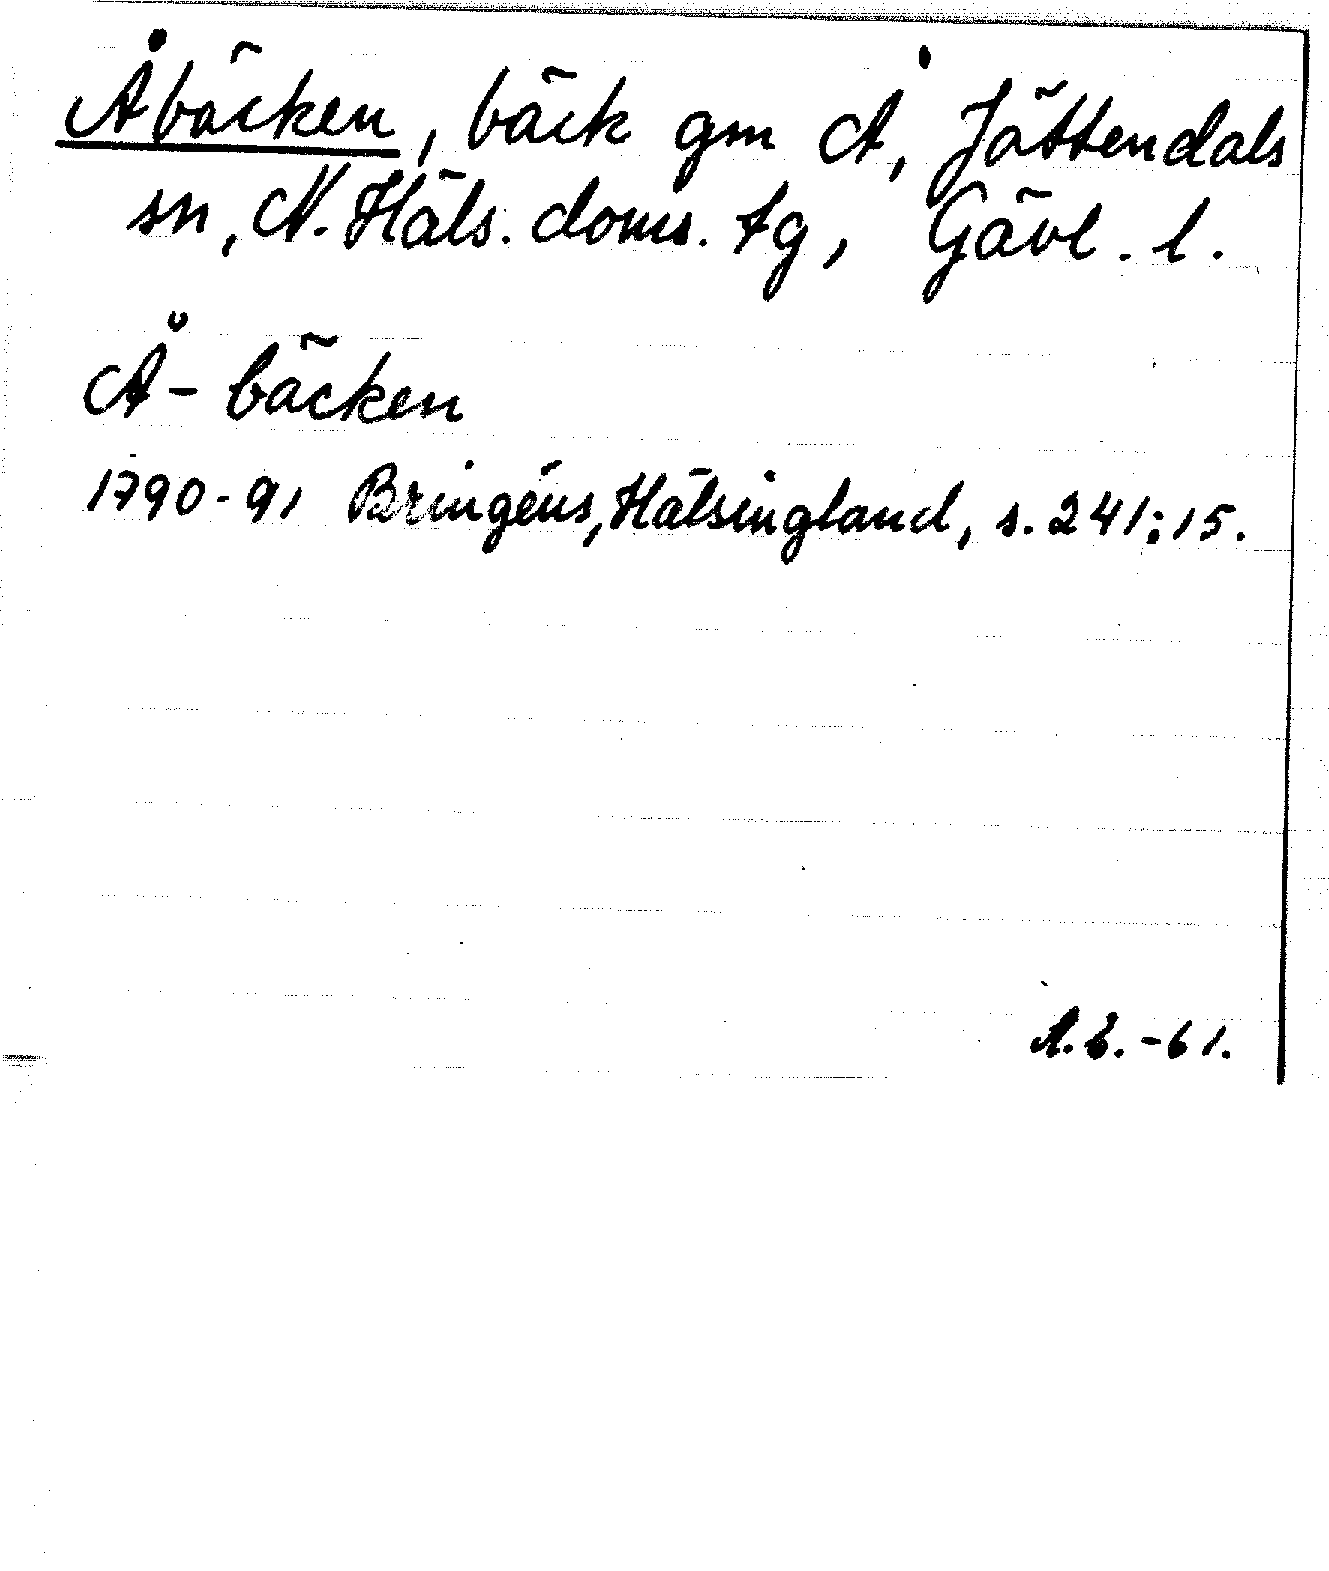 Åbäcken, bäck gm Å, Jättendals
sn, N. Häls. doms. tg, Gävl. l.
Å-bäcken
1790-91 Bringéus, Hälsingland, s. 241:15.
-61.